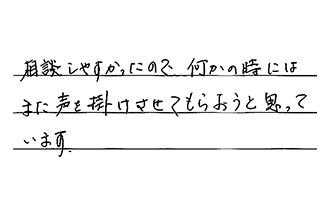 相談しやすかったので、何かの時には
また声を掛けさせてもらおうと思って
います.